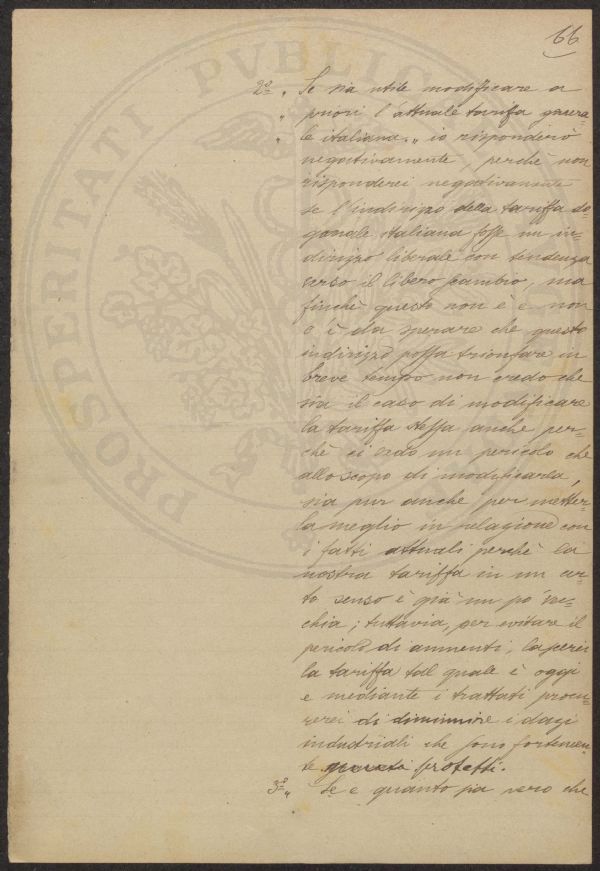 66
2º „ Se sia utile modificare a
„ priori l'attuale tariffa genera-
„ le italiana „ io risponderò
negativamente, perchè non
risponderei negativamente
se l'indirizzo della tariffa do
ganale italiana fosse un in-
dirizzo liberale con tendenza
verso il libero scambio, ma
finchè questo non è e non
c'è da sperare che questo
indirizzo possa trionfare in
breve tempo non credo che
sia il caso di modificare
la tariffa stessa anche per-
chè ci vedo un pericolo che
allo scopo di modificarla,
sia pur anche per metter-
la meglio in relazione con
i fatti attuali perchè la
nostra tariffa in un cer-
to senso è già un po' vec-
chia; tuttavia, per evitare il
pericolo di aumenti, lascerei
la tariffa tal quale è oggi
e mediante i trattati procu-
rerei di diminuire i dazi
industriali che sono fortemen-
te protetti.
3º „ Se e quanto sia vero che
PROSPERITATI PVBLIC